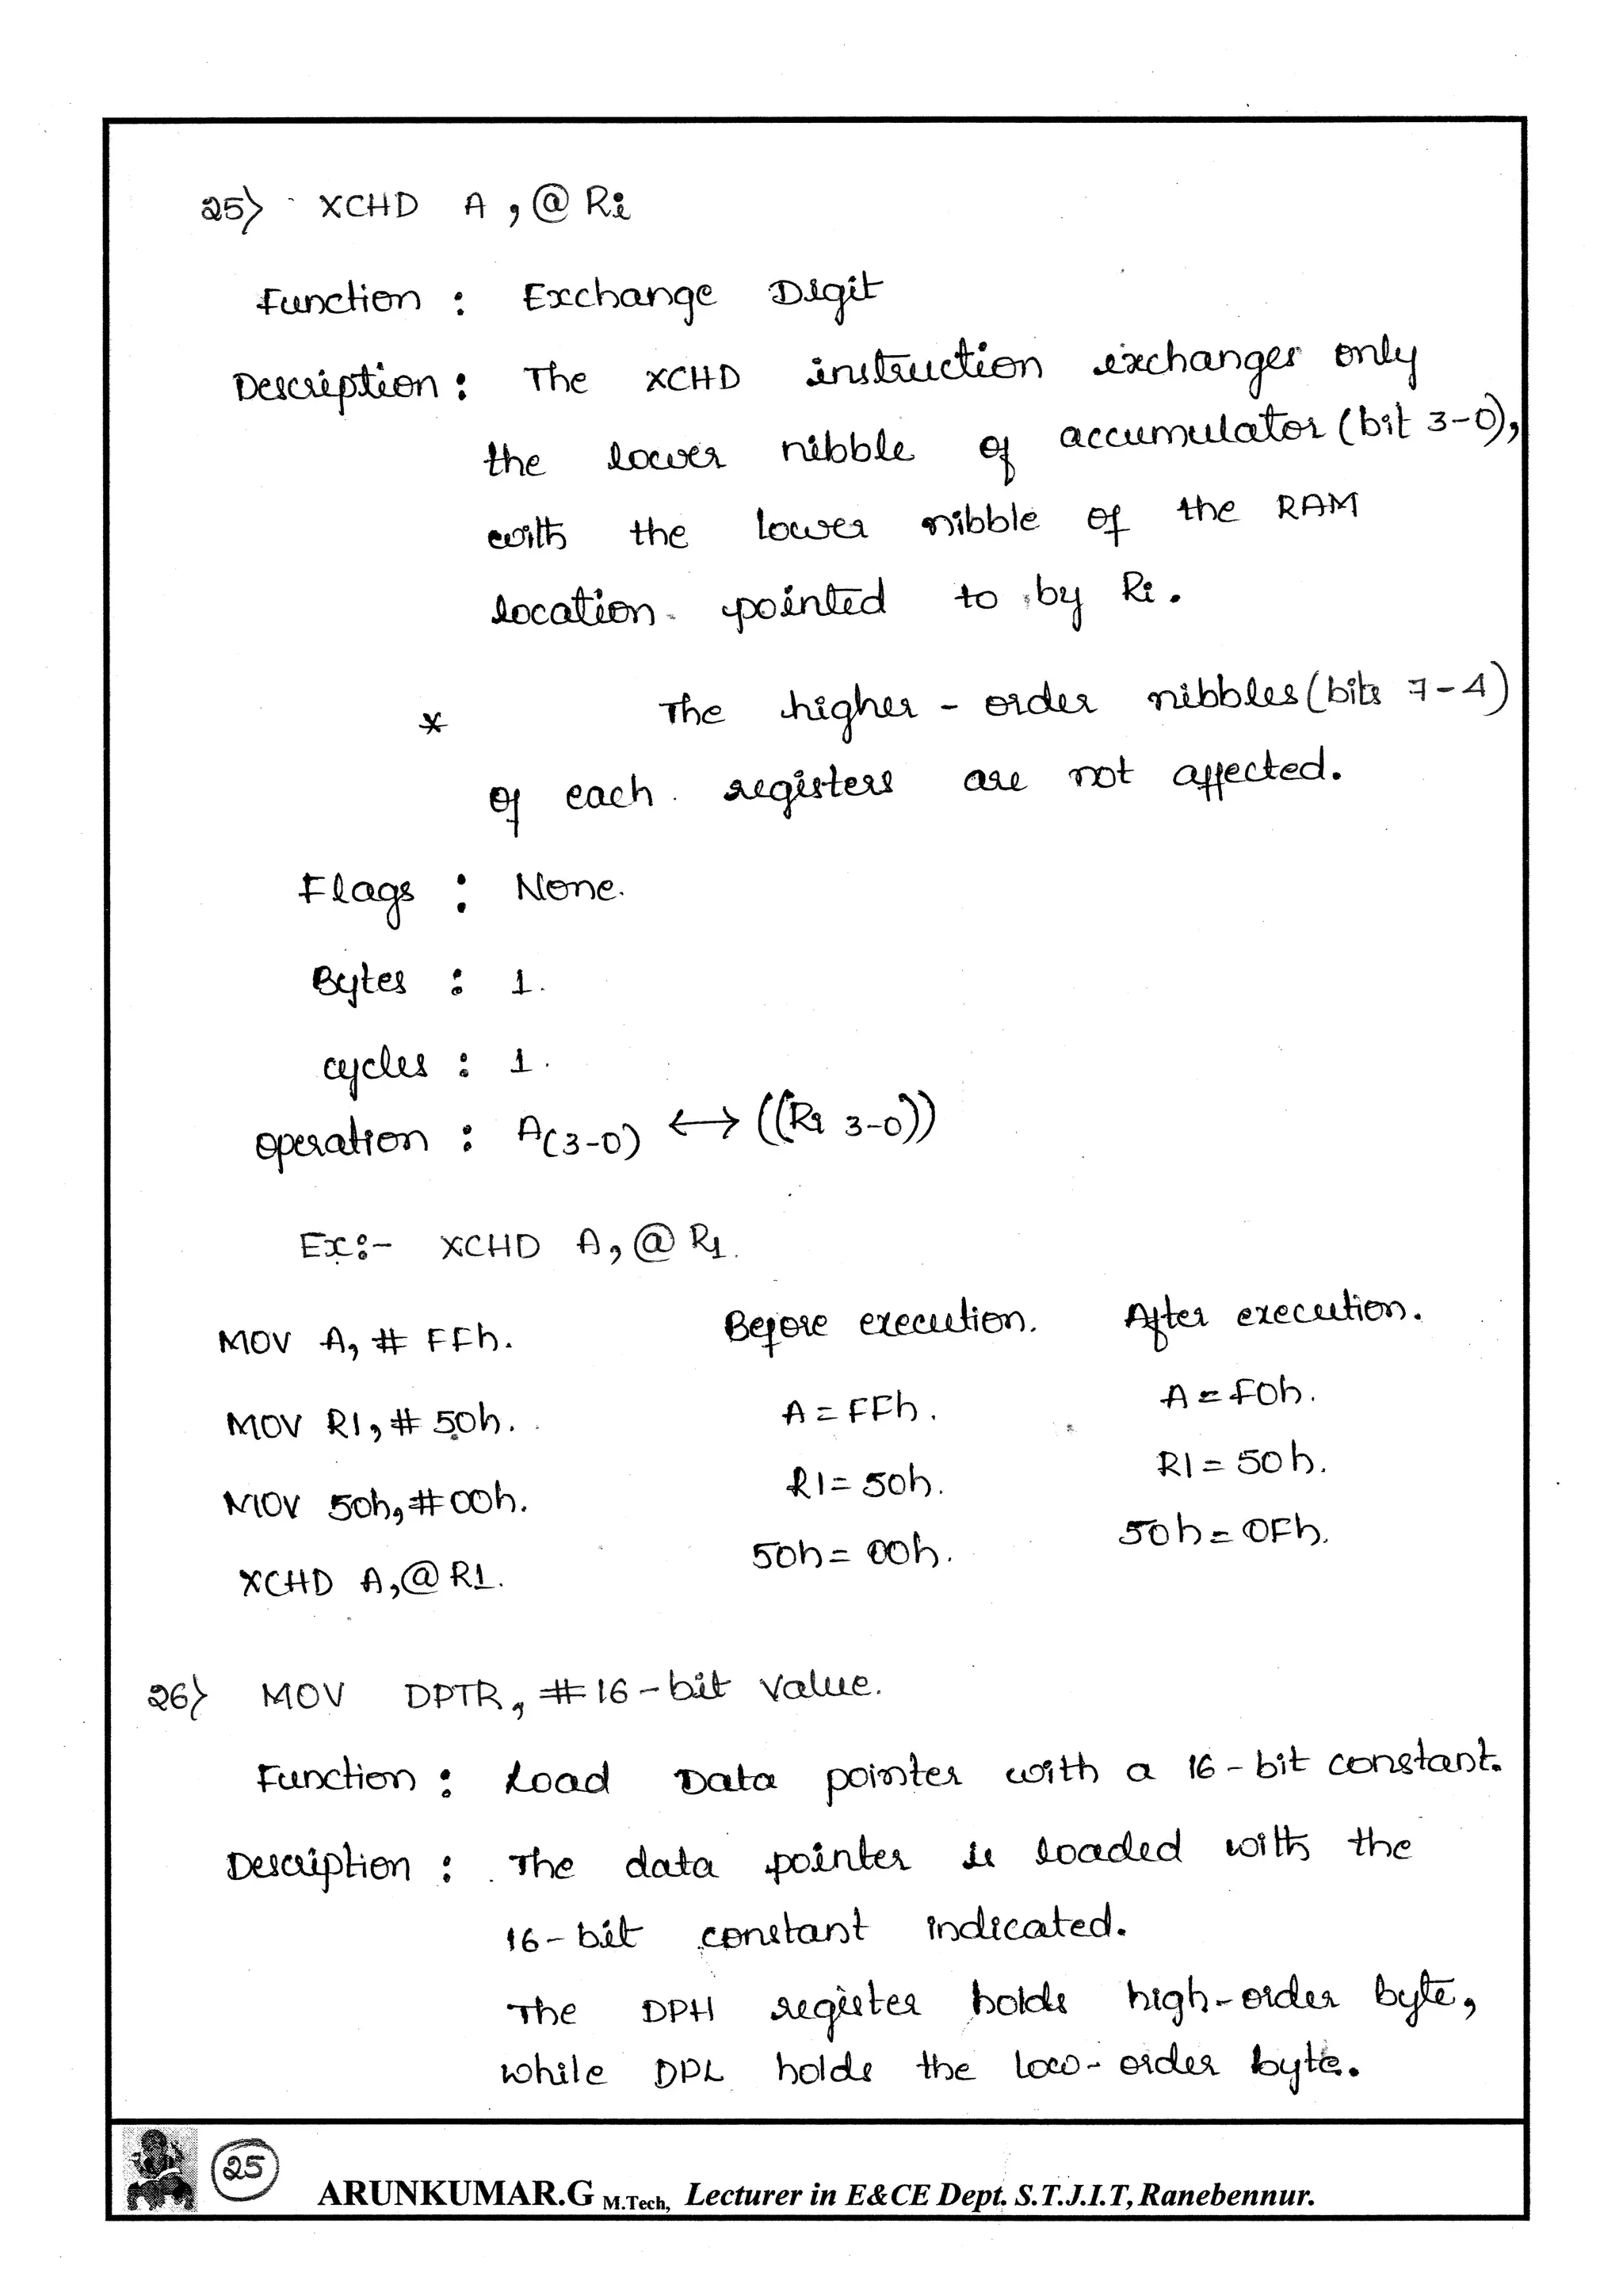 25) XCHD A, @ Ri
Function : Exchange Digit
Description : The XCHD instruction exchanges only
the lower nibble of accumulator (bit 3-0),
with the lower nibble of the RAM
location pointed to by Ri.
* The higher-order nibbles (bits 7-4)
of each registers are not affected.
Flags : None.
Bytes : 1.
cycles : 1.
operation : A(3-0) ↔ ((Ri 3-0))
Ex:- XCHD A, @ R1.
Before execution. After execution.
MOV A, # FFh. A = FFh. A = F0h.
MOV R1, # 50h. R1 = 50h. R1 = 50h.
MOV 50h, #00h. 50h = 00h. 50h = 0Fh.
XCHD A, @ R1.
26) MOV DPTR, #16-bit value.
Function : Load Data pointer with a 16-bit constant.
Description : The data pointer is loaded with the
16-bit constant indicated.
The DPH register holds high-order byte,
while DPL holds the low-order byte.
25
ARUNKUMAR.G M.Tech, Lecturer in E&CE Dept. S.T.J.I.T, Ranebennur.